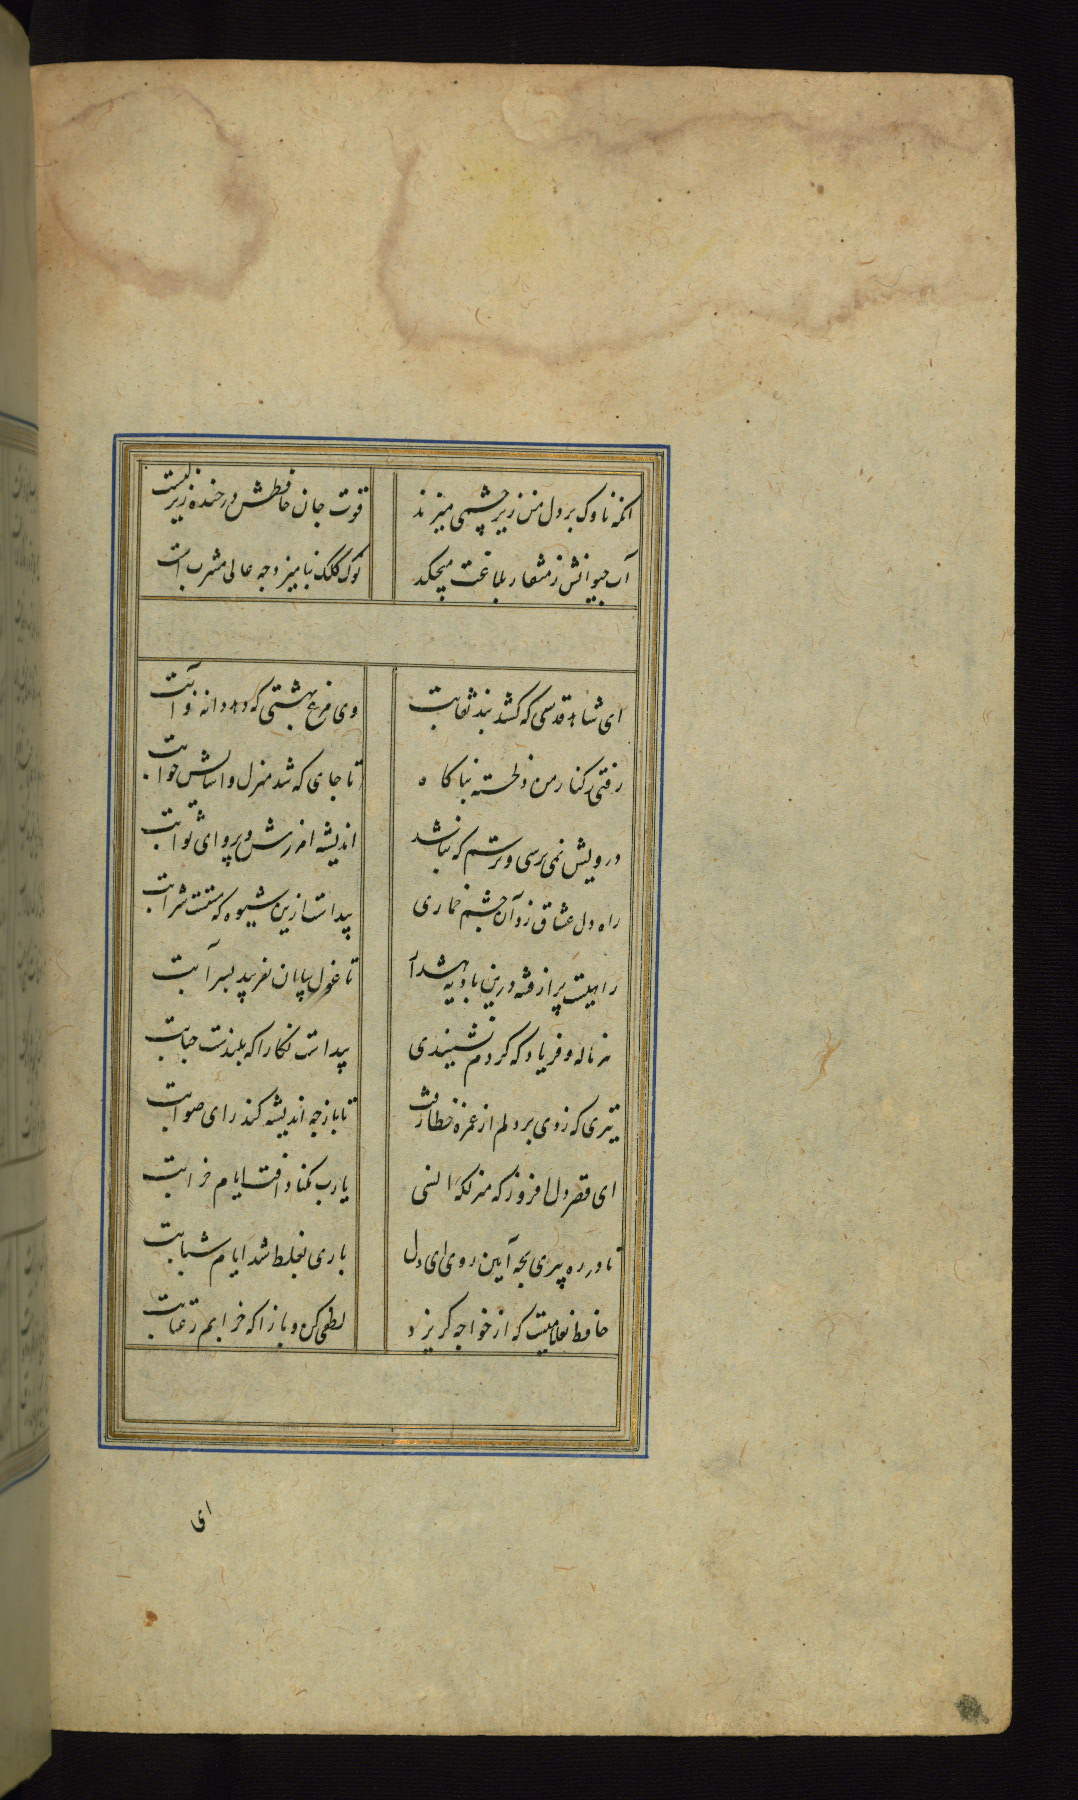 انکه ناوک بر دل من زیر چشمی میزند قوت جان حافظش در خنده زیر لبست
آب حیوانش ز منقار بلاغت میچکد نوک کلک نبامیزد چه عالی مشربست
ای شاهد قدسی که کشد بند نقابت وی مرغ بهشتی که دهد دانه و آبت
رفتی ز کنار من دلخسته نباکاه تا جای که شد منزل و آسایش خوابت
درویش نمی پرسی و ترسم که نباشد اندیشه امرزش و پروای ثوابت
راه دل عشاق زد آن چشم خماری پیداست ازین شیوه که مستست شرابت
راهیست پر از فتنه درین بادیه هشدار تا غول بیابان نفریبد بسرابت
هر ناله و فریاد که کردم نشنیدی پیداست نکارا که بلندست جنابت
تیری که زدی بر دلم از غمزه خطا رفت تا باز چه اندیشه کند رای صوابت
ای قصر دل افروز که منزلکه انسی یارب مکناد آفت ایام خرابت
تا در ره پیری بچه آیین روی ای دل باری بغلط شد ایام شبابت
حافظ نه غلامیست که از خواجه کریزد لطفی کن و باز آ که خرابم ز عتابت
ای